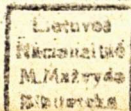 Lietuvos
Nacionalinė
M.Mažvydo
Biblioteka